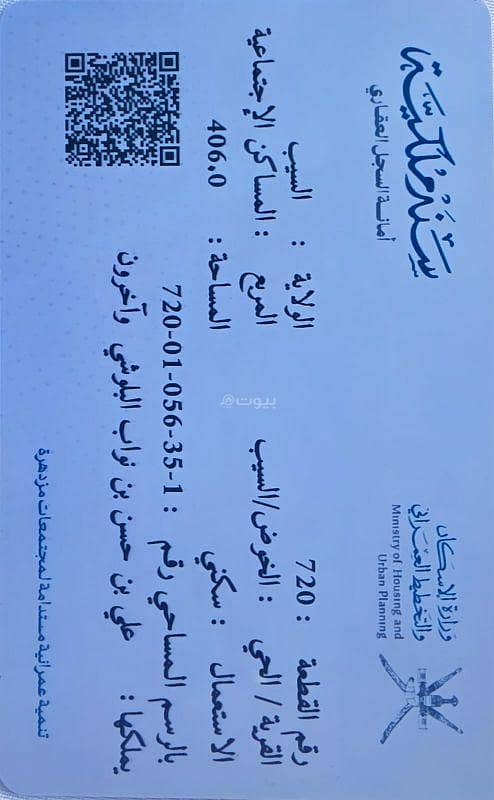 سند ملكية
أمانة السجل العقاري
وزارة الإسكان
والتخطيط العمراني
Ministry of Housing and
Urban Planning
رقم القطعة : 720 الولاية : السيب
القرية / الحي : الخوض/السيب المربع : المساكن الإجتماعية
الاستعمال : سكني المساحة : 406.0
بالرسم المساحي رقم : 720-01-056-35-1
يملكها : علي بن حسن بن نواب البلوشي وآخرون
تنمية عمرانية مستدامة لمجتمعات مزدهرة
بيوت